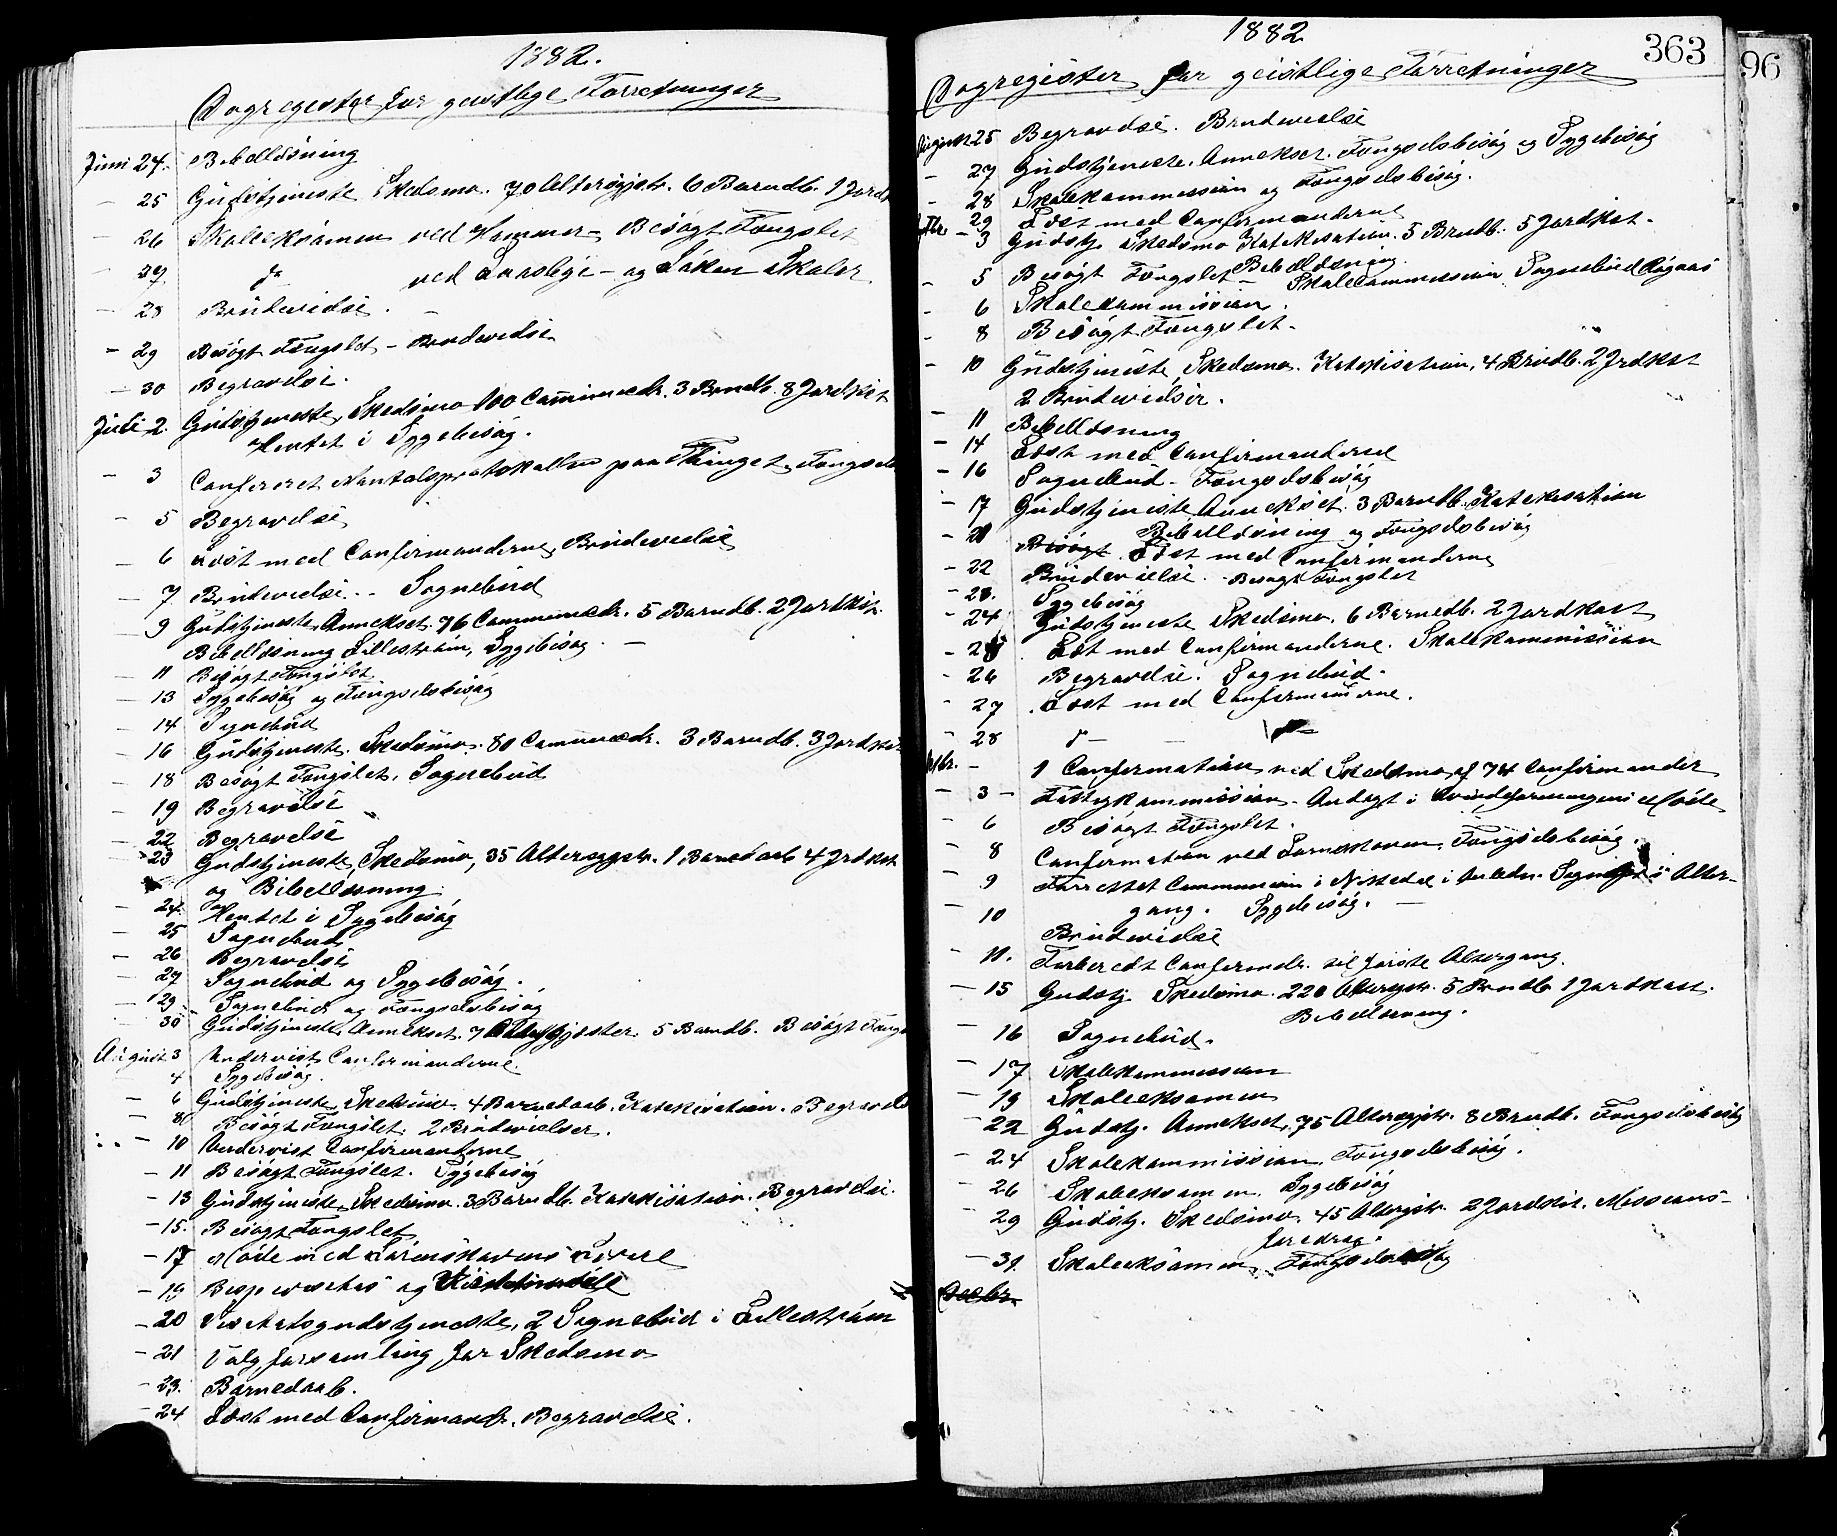 1882.
Dagregister for geistlige Forretninger
Juni 24. Bibellæsning
- 25 Gudstjeneste Skedsmo. 70 Altergjstr. 6 Barndb. 1 Jordk
- 26 Skoleeksamen ved Hammer - Besøgt Fængslet
- 27 do ved Garslige - og Laken Skoler
- 28 Brudevielse. -
- 29 Besøgt Fængslet - Brudevielse
- 30 Begravelse.
Juli 2. Gudstjeneste, Skedsmo 100 Communicdr. 3 Barndb. 8 Jordkst
Hentet i Sygebesøg.
- 3 Confereret Mantalsprotokollen paa Thinget, Fængsels
- 5 Begravelse
- 6 Læst med Confirmanderne, Brudevielse
- 7 Brudevielse. - Sognebud
- 9 Gudstjeneste, Annekset. 76 Communicdr. 5 Barndb. 2 Jordkst.
Bibellæsning Lillestrøm, Sygebesøg. -
- 11 Besøgt Fængslet
- 13 Sygebesøg og Fængselsbesøg
- 14 Sognebud
- 16 Gudstjeneste. Skedsmo. 80 Communicdr. 3 Barndb. 3 Jordkst
- 18 Besøgt Fængslet, Sognebud
- 19 Begravelse
- 22 Begravelse
- 23 Gudstjeneste, Skedsmo, 35 Altergjstr. 1 Barnedaab 4 Jrdkst
og Bibellæsning
- 24. Hentet i Sygebesøg
- 25 Sognebud
- 26 Begravelse
- 27 Sognebud og Sygebesøg.
- 29 Sognebud og Fængselsbesøg
- 30 Gudstjeneste, Annekset. 7 Altergjester. 5 Barndb. Besøgt Fængs
August 3 Undervist Confirmanderne.
4 Sygebesøg.
- 6 Gudstjeneste, Skedsmo. 4 Barnedaab. Katekisation. Begravelse
- 8 Besøgt Fængslet. 2 Brudevielser.
- 10 Undervist Confirmanterne
- 11 Besøgt Fængslet. Sygebesøg
- 13 Gudstjeneste, Skedsmo. 3 Barndb. Katekisation. Begravelse.
- 15. Besøgt Fængslet
- 17 Møde med Lørenskovens
- 19 Bispevisitas og
- 20 Visitatsgudstjeneste, 2 Sognebud i Lillestrøm
- 21 Valgforsamling for Skedsmo
- 23. Barnedaab.
- 24 Læst med Confirmandr. Begravelse.
1882
363
96
Dagregister for geistlige Forretninger
August 25 Begravelse. Brudevielse
- 27 Gudstjeneste. Annekset. Fængselsbesøg og Sygebesøg
- 28 Skolekommission og Fængselsbesøg.
- 29 Læst med Confirmanderne
Septbr. - 3 Gudstj. Skedsmo Katekisation. 5 Brndb. 5 Jordkst.
Bibellæsning.
- 5 Besøgt Fængslet - Skolecommission. Sognebud
- 6 Skolekommission.
- 8 Besøgt Fængslet.
- 10 Gudstjeneste, Skedsmo. Katekisation, 4 Brndb. 2 Jrdkst
2 Brudevielser.
- 11 Bibellæsning
- 14 Læst med Confirmanderne
- 16 Sognebud - Fængselsbesøg
- 17 Gudstjeneste Annekset. 3 Barndb. Katekisation
Bibellæsning og Fængselsbesøg
- 21 Besøgt Læst med Confirmanderne
- 22 Brudevielse. Besøgt Fængslet
- 23. Sygebesøg
- 24 Gudstjeneste Skedsmo, 6 Barnedb. 2 Jordkast
- 25 Læst med Confirmanderne. Skolekommission
- 26 Begravelse. Sognebud.
- 27 Læst med Confirmanderne.
- 28 do - - do -
Octbr. - 1 Confirmation ved Skedsmo af 74 Confirmander
- 3 - Fattigkommission - Andagt i Møde
- 6 Besøgt Fængslet.
- 8 Confirmation ved Lørenskoven. Fængselsbesøg.
- 9 Forrettet Communion i Nittedal i Anledn. Sognepr.s Alter-
gang. Sygebesøg. -
- 10 Brudevielse
- 11. Forberedt Confirmdr. til første Altergang.
- 15 Gudstj Skedsmo. 220 Altergstr. 5 Brndb 1 Jordkast.
Bibellæsning.
- 16 Sognebud.
- 17 Skolekommission
- 19 Skoleeksamen
- 22 Gudstj. Annekset, 75 Altergjstr. 8 Brndb. Fængselsbesøg
- 24 Skolekommission Fængselsbesøg.
- 26 Skoleeksamen. Sygebesøg
- 29 Gudstj. Skedsmo. 45 Altergstr. 2 Jordkst. Missions-
foredrag.
- 31 Skoleeksamen, Fængselsbesøg
Decbr.